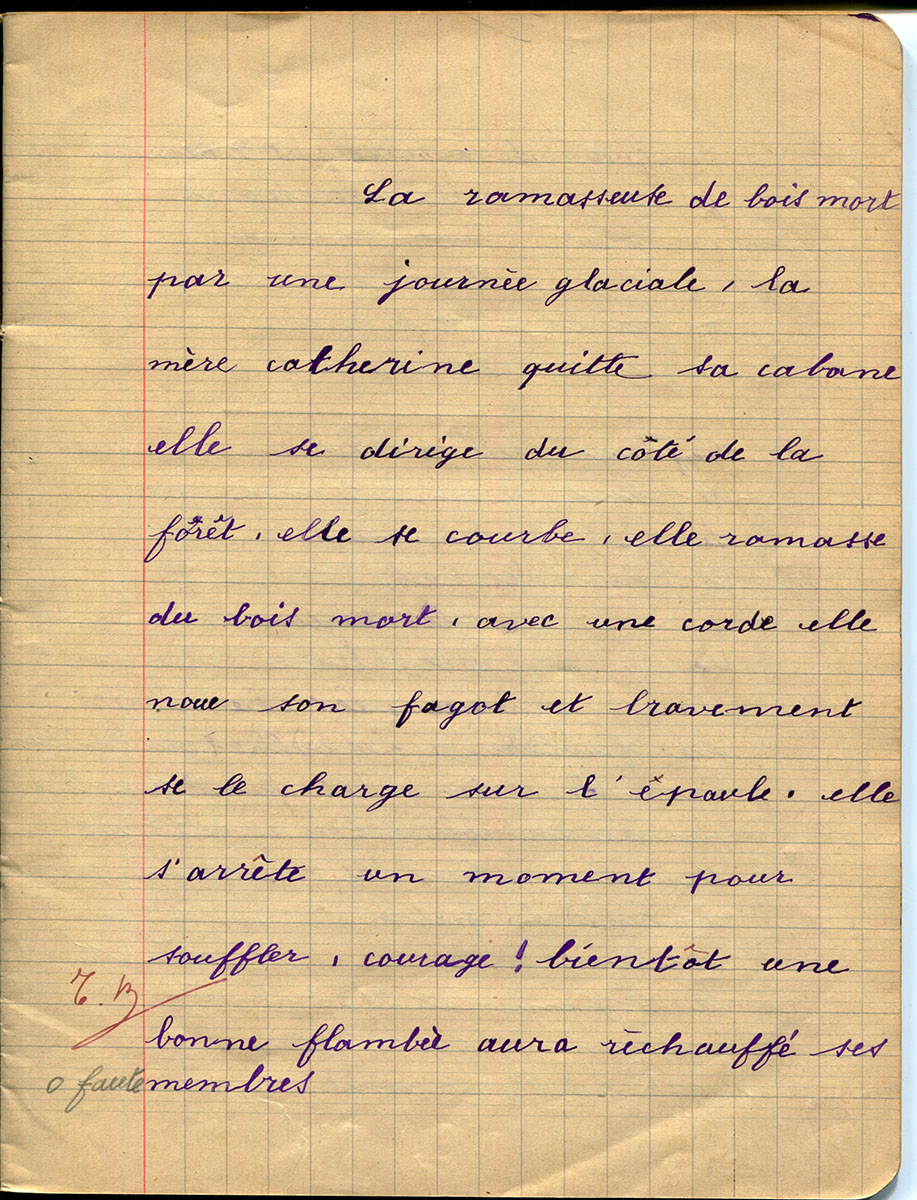 La ramasseuse de bois mort
par une journée glaciale, la
mère catherine quitte sa cabane
elle se dirige du côté de la
fôrêt, elle se courbe, elle ramasse
du bois mort, avec une corde elle
noue son fagot et bravement
se le charge sur l'épaule. elle
s'arrête un moment pour
souffler, courage ! bientôt une
T. B
bonne flambée aura réchauffé ses
0 faute
membres